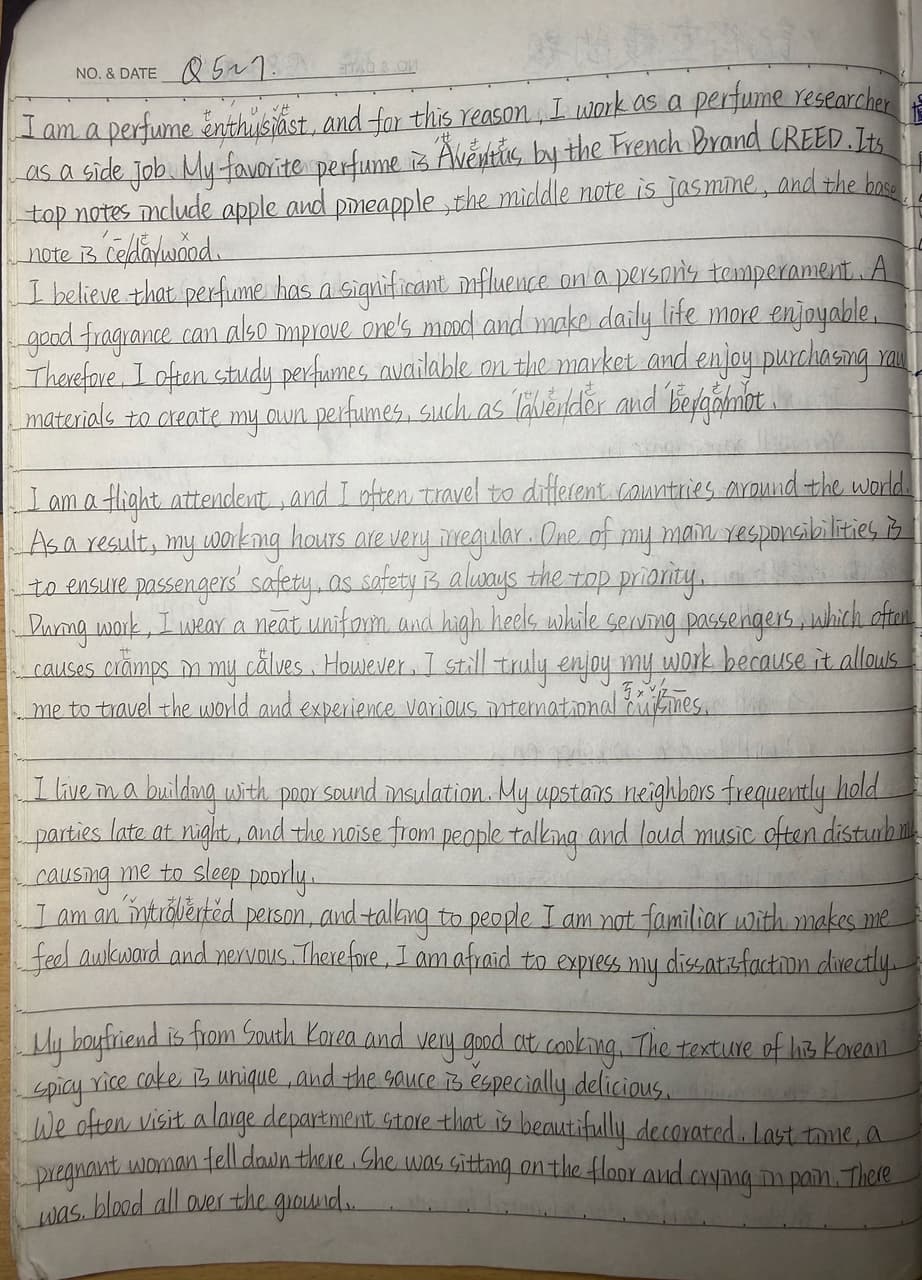 NO. & DATE Q5~7.
I am a perfume enthusiast, and for this reason, I work as a perfume researcher
as a side job. My favorite perfume is Aventus by the French Brand CREED. Its
top notes include apple and pineapple, the middle note is jasmine, and the base
note is cedarwood.
I believe that perfume has a significant influence on a person's temperament. A
good fragrance can also improve one's mood and make daily life more enjoyable.
Therefore, I often study perfumes available on the market and enjoy purchasing raw
materials to create my own perfumes, such as lavender and bergamot.
I am a flight attendent, and I often travel to different countries around the world.
As a result, my working hours are very irregular. One of my main responsibilities is
to ensure passengers' safety, as safety is always the top priority.
During work, I wear a neat uniform and high heels while serving passengers, which often
causes cramps in my calves. However, I still truly enjoy my work because it allows
me to travel the world and experience various international cuisines.
I live in a building with poor sound insulation. My upstairs neighbors frequently hold
parties late at night, and the noise from people talking and loud music often disturb
causing me to sleep poorly.
I am an introverted person, and talking to people I am not familiar with makes me
feel awkward and nervous. Therefore, I am afraid to express my dissatisfaction directly.
My boyfriend is from South Korea and very good at cooking. The texture of his Korean
spicy rice cake is unique, and the sauce is especially delicious.
We often visit a large department store that is beautifully decorated. Last time, a
pregnant woman fell down there. She was sitting on the floor and crying in pain. There
was blood all over the ground.